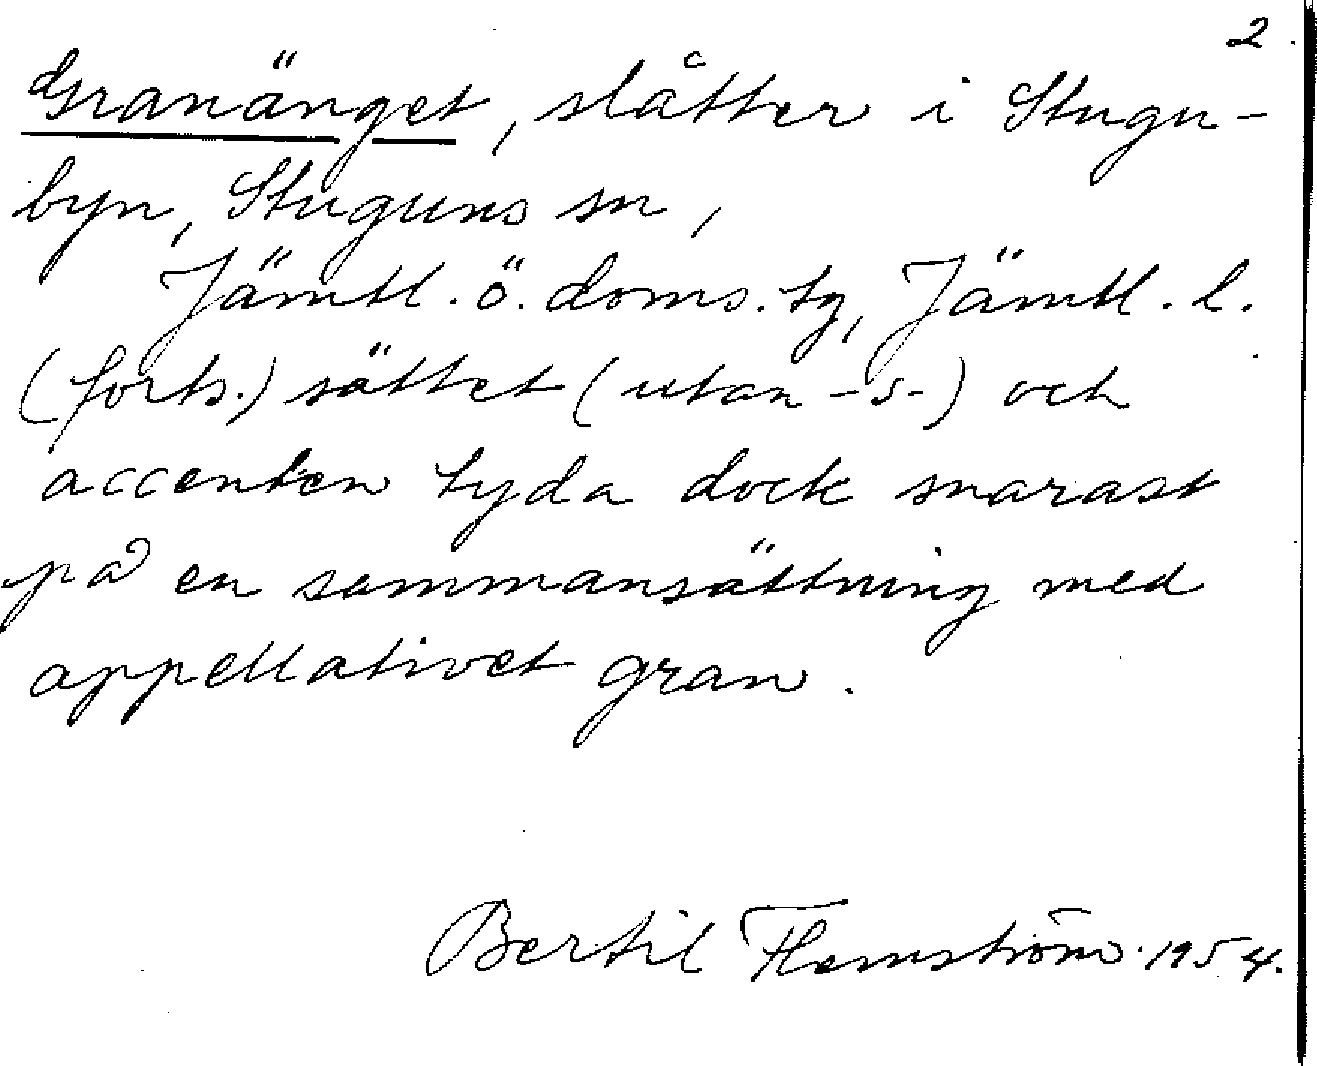 2.
Granänget, slåtter i Stugu-
byn, Stuguns sn,
Jämtl. ö. doms. tg, Jämtl. l.
(forts.) sättet (utan -s-) och
accenten tyda dock snarast
på en sammansättning med
appellativet gran.
Bertil Flemström 1954.